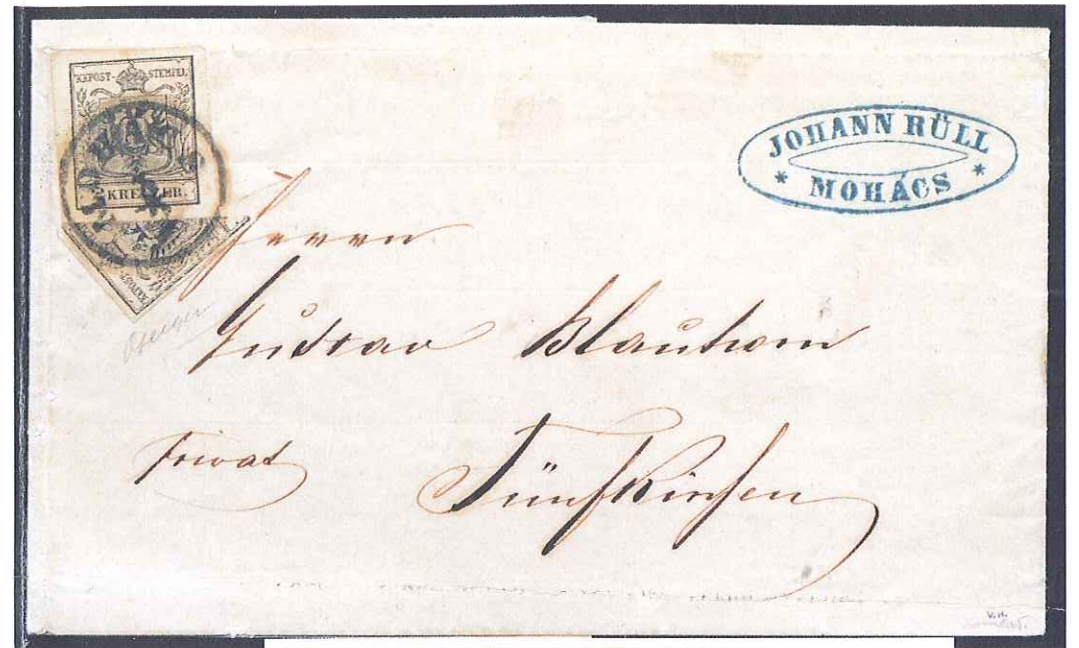 KKPOST-STEMPEL
KREUZER.
JOHANN RÜLL
* MOHÁCS *
Herrn
Gustav Blauhorn
Privat
Fünfkirchen